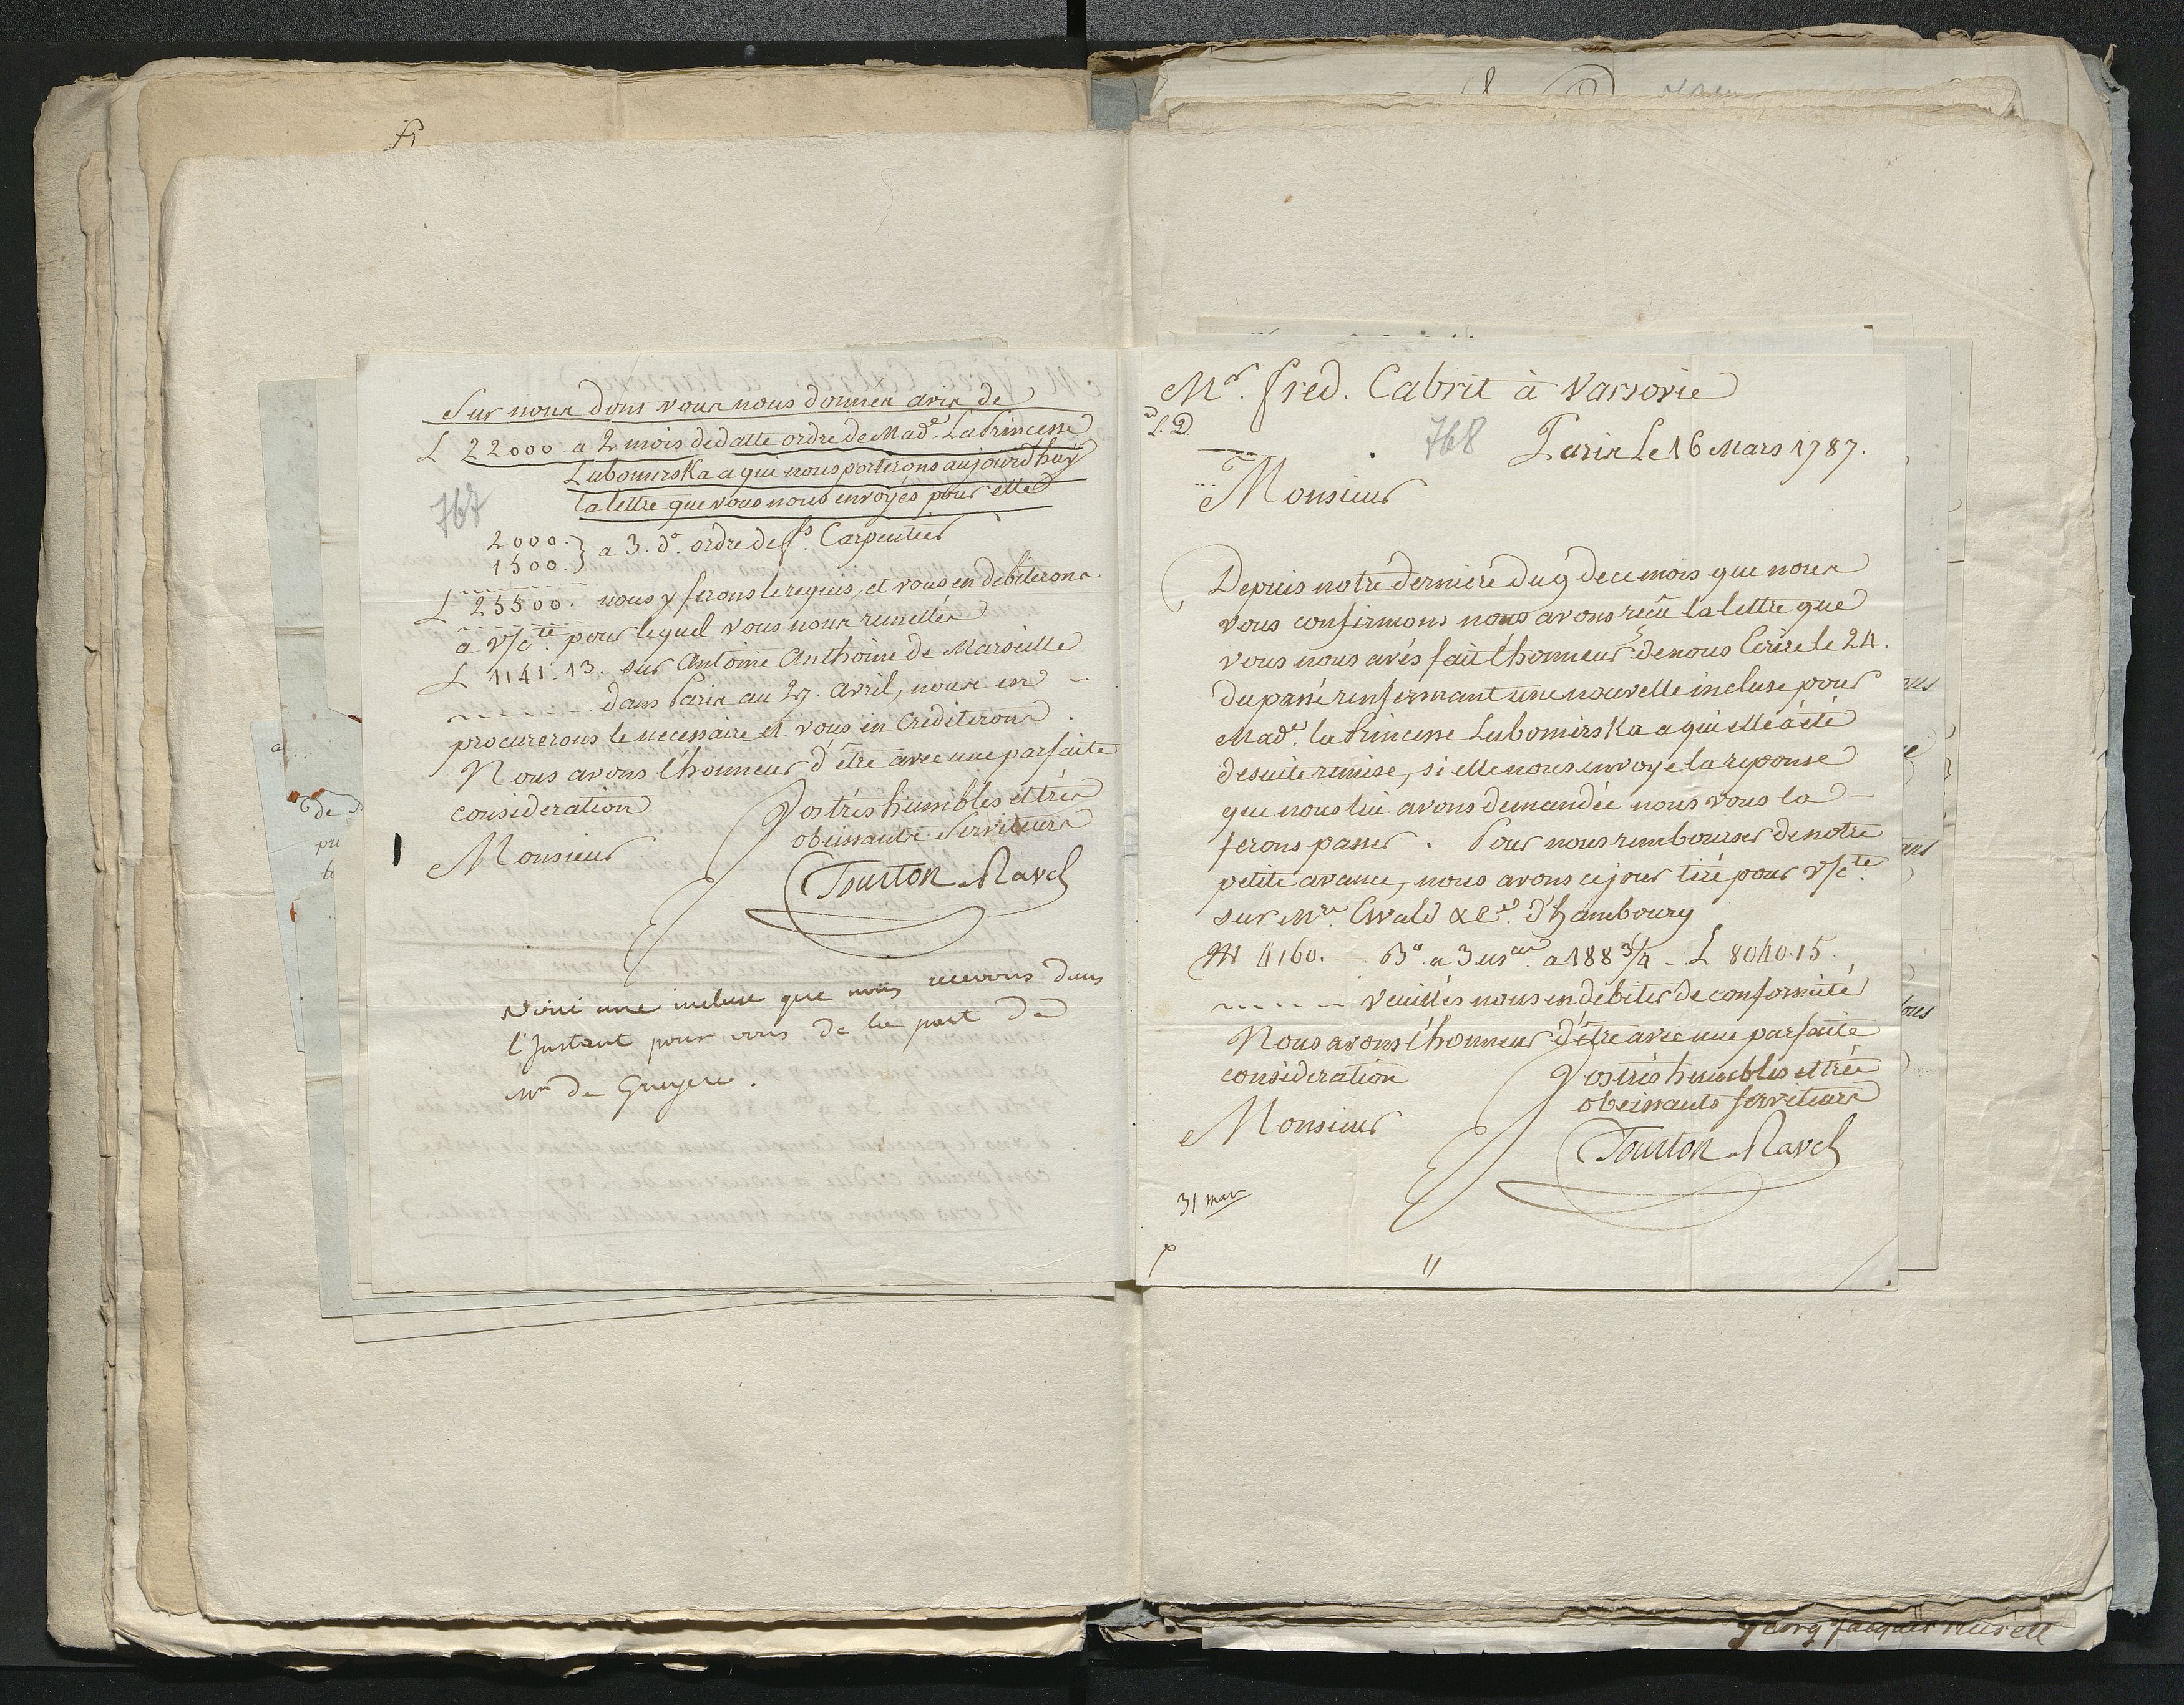 Sur nous dont vous nous donnez avis de
L 22000. a 2 mois de datte ordre de Made. La Princesse
Lubomirska a qui nous porterons aujourd'huy
la lettre que vous nous envoyés pour elle
767
2000.
1500. } a 3. do. ordre de fs. Carpentier
L 25500. nous y ferons le requis, et vous en debiterons
a v/cte. pour lequel vous nous remettés
L 1141.13. sur Antoine Anthoine de Marseille
dans Paris au 29. avril, nous en
procurerons le necessaire et vous en Crediterons.
Nous avons l'honneur d'être avec une parfaite
consideration
Monsieur
Vos très humbles et très
obeissants Serviteurs
Tourton & Ravel
Voici une incluse que nous recevons dans
l'Instant pour vous de la part de
Mr de Gruyere.
Mr. fred. Cabrit à Varsovie
L. D.
768
Paris Le 16 Mars 1787.
Monsieur
Depuis notre derniere du 9 de ce mois que nous
vous confirmons nous avons recû la lettre que
vous nous avés fait l'honneur de nous Ecrire le 24.
du passé renfermant une nouvelle incluse pour
Made. la Princesse Lubomirska a qui elle a été
de suite remise, si elle nous envoye la reponse
que nous lui avons demandée nous vous la
ferons passer. Pour nous rembourser de notre
petite avance, nous avons ce jour tiré pour v/cte.
sur Mrs. Ewald & Ce. d'hambourg
M 4160. — Bo. a 3 usces. a 188 3/4 — L 8040.15.
Veuillés nous en debiter de conformité
Nous avons l'honneur d'être avec une parfaite
consideration
Vos très humbles et très
obeissants serviteurs
Monsieur
Tourton & Ravel
31 mars
11
georg Jacques